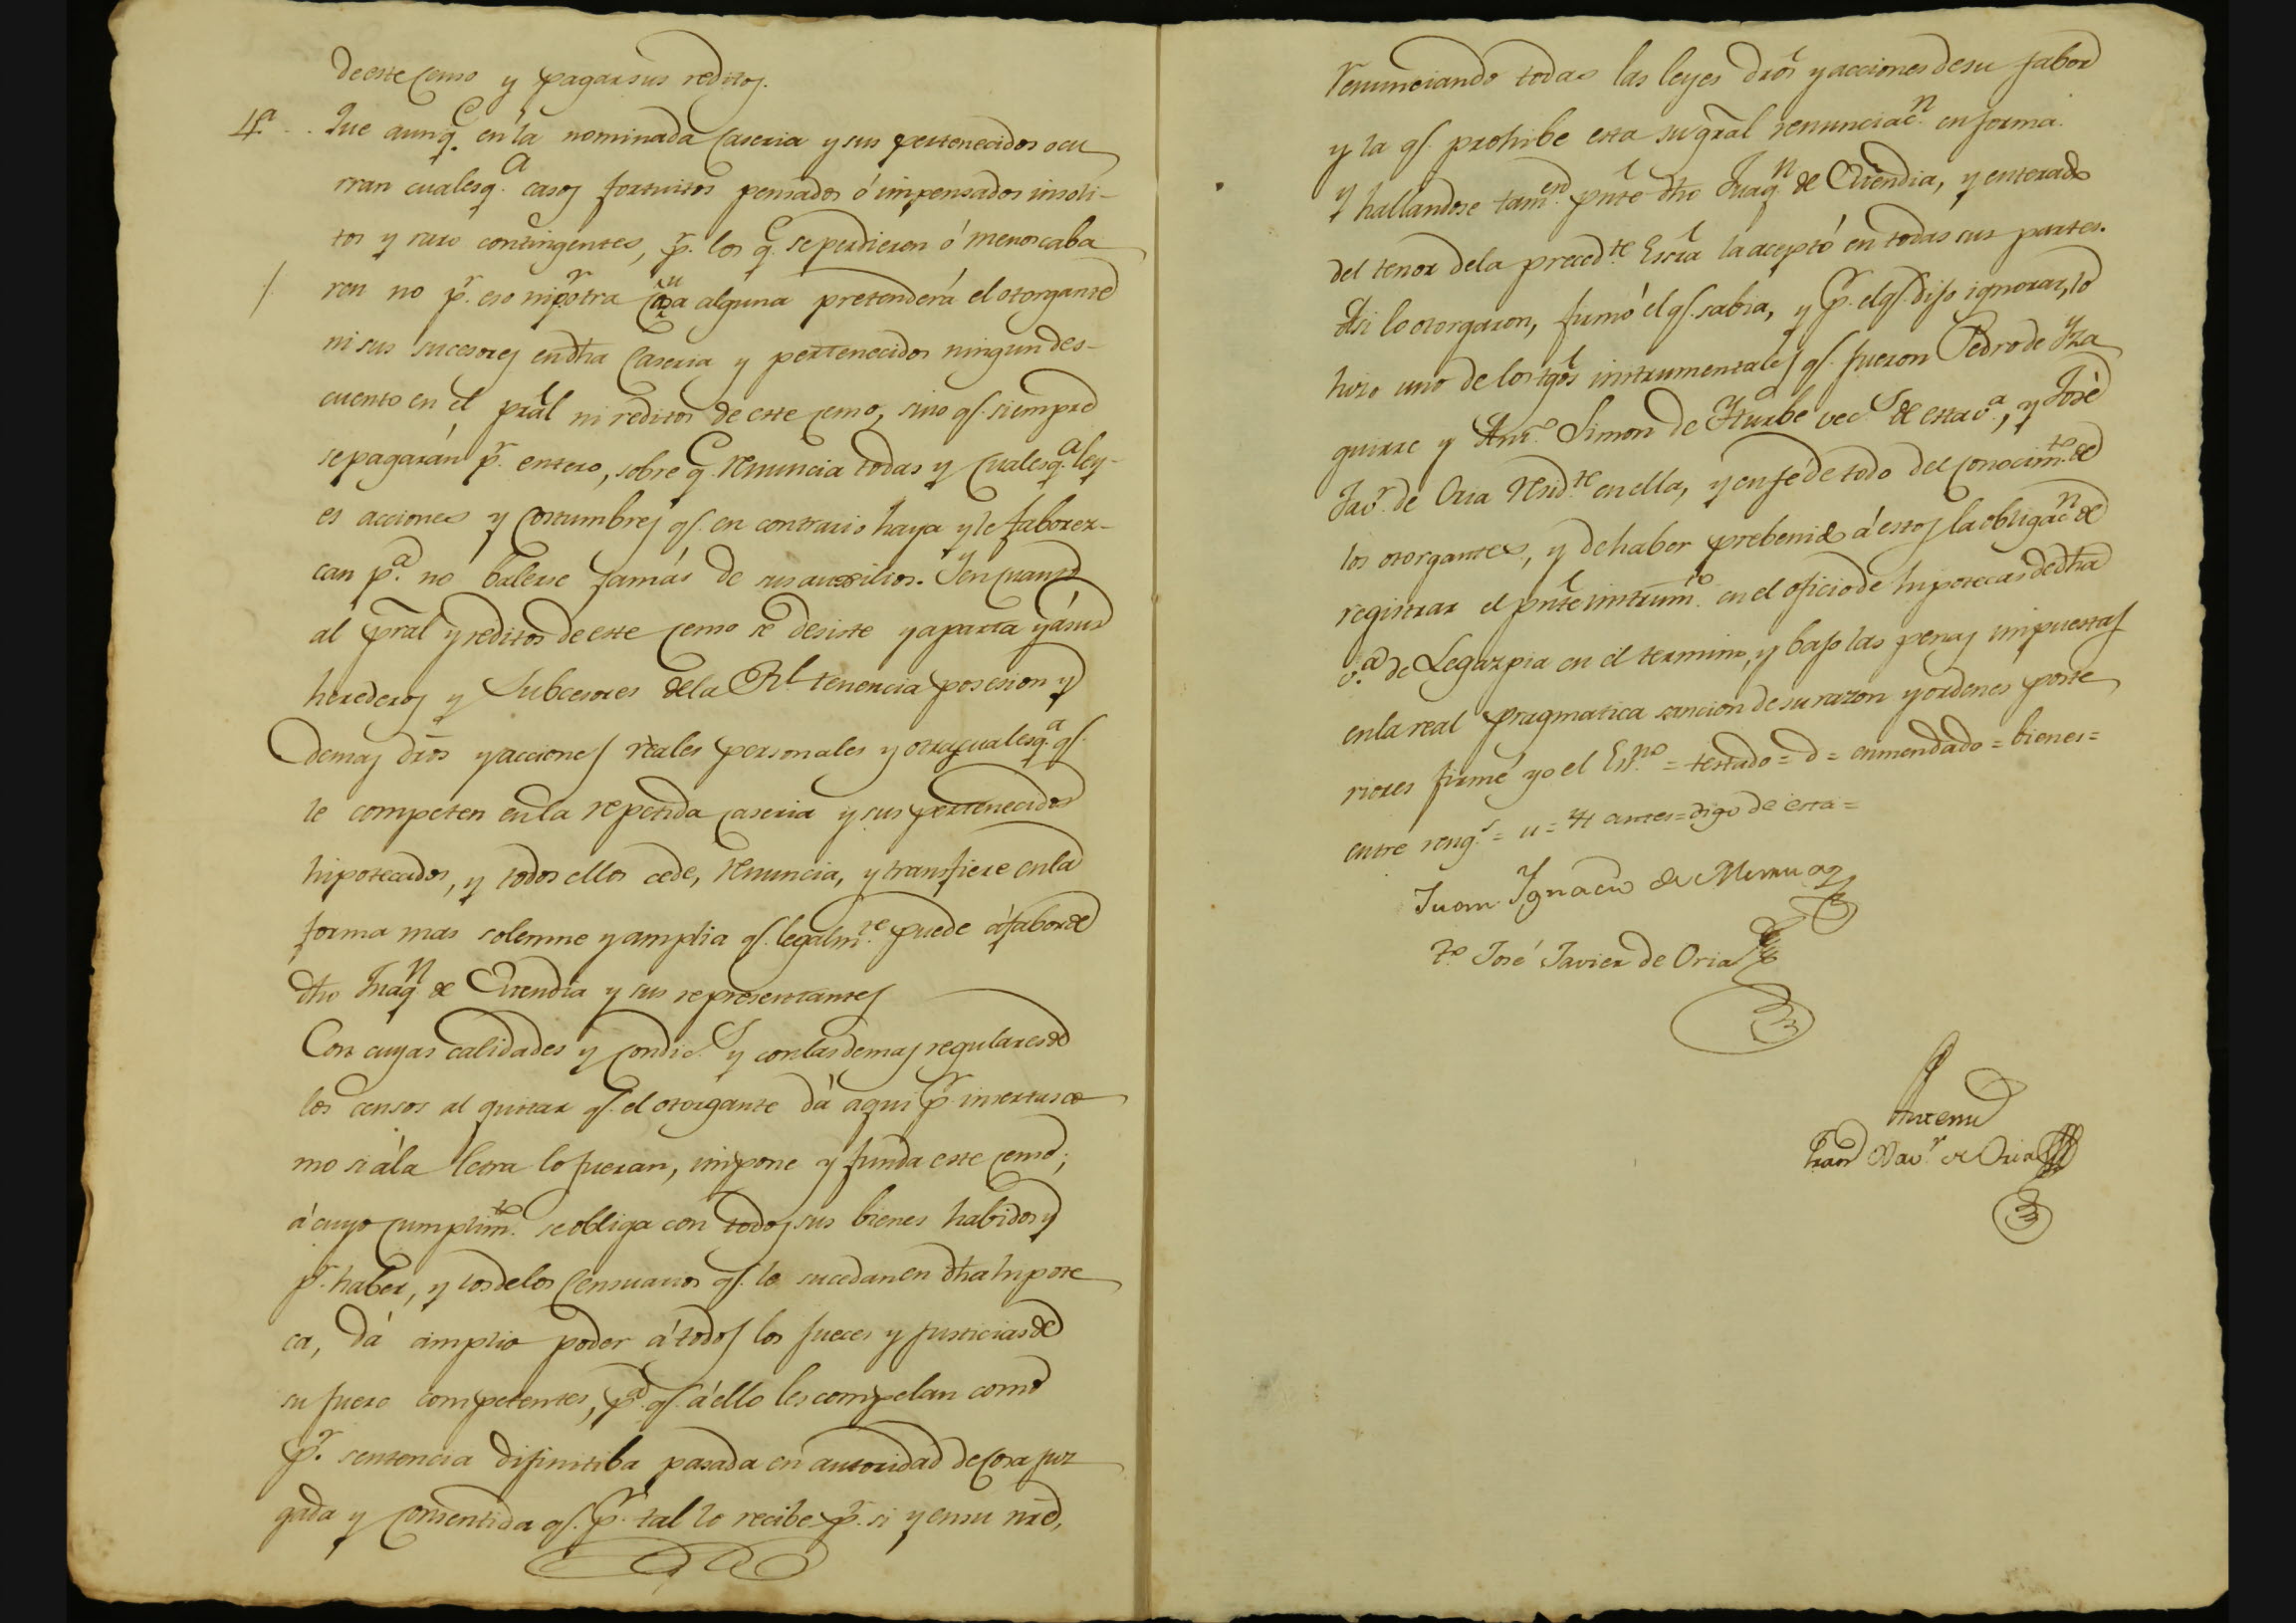 de este censo y pagar sus reditos.
4ª.. Que aunq.e en la nominada Caseria y sus pertenecidos ocu
rran cualesq.a casos fortuitos pensados ó impensados insoli-
tos y raro contingentes, p.r los q.e se perdieren ó menoscaba
ren no p.r eso ni p.r otra alguna pretenderá el otorgante
ni sus sucesores en dha Caseria y pertenecidos ningun des-
cuento en el pral ni reditos de este censo, sino q.e siempre
se pagarán p.r entero, sobre q.e renuncia todas y cualesq.a ley-
es acciones y costumbres q.e en contrario haya y le faborez-
can p.a no balerse jamás de sus auxilios. Y en cuanto
al pral y reditos de este censo se desiste y aparta y á sus
herederos y Subcesores de la R.l tenencia posesion y
demas dros y acciones reales personales y otras cualesq.a q.e
le competen en la repetida caseria y sus pertenecidos
hipotecados, y todos ellos cede, renuncia, y transfiere en la
forma mas solemne y amplia q.e legalm.te puede á fabor de
dho Juaq.n de y sus representantes
Con cuyas calidades y condic.s y con las demas regulares de
los censos al quitar q.e el otorgante dá aqui p.r insertas co
mo si á la letra lo fueran, impone y funda este censo;
á cuyo cumplim.to se obliga con todos sus bienes habidos y
p.r haber, y los de los Censuarios q.e le sucedan en dha hipote
ca, dá amplio poder á todos los jueces y justicias de
su fuero competentes, p.a q.e á ello les compelan como
p.r sentencia difinitiba pasada en autoridad de cosa juz
gada y consentida q.e p.r tal lo recibe p.r si y en su nre,
renunciando todas las leyes dros y acciones de su fabor
y la q.e prohibe esta su gral renunciac.n en forma.
y hallandose tam.en pnte dho Juaq.n de y enterado
del tenor de la preced.te Escra la aceptó en todas sus partes.
Asi lo otorgaron, firmó el q.e sabia, y p.r el q.e dijo ignorar, lo
hizo uno de los tgos instrumentales q.e fueron Pedro de Yza
guirre y Ant.o Simon de Yturbe vec.s de esta v.a, y José
Jav.r de Oria Resid.te en ella, y en fé de todo del conocim.to de
los otorgantes, y de haber prebenido á estos la obligac.n de
registrar el pnte instrum.to en el oficio de hipotecas de dha
v.a de Legazpia en el termino, y bajo las penas impuestas
en la real pragmatica sancion de su razon y ordenes poste
riores firmé yo el Ess.no = testado = d = enmendado = bienes =
entre reng.s = u = antes = digo de esta =
Juan Ignacio de
t.o José Javier de Oria
Antemi
Fran.co Xav.r de Oria